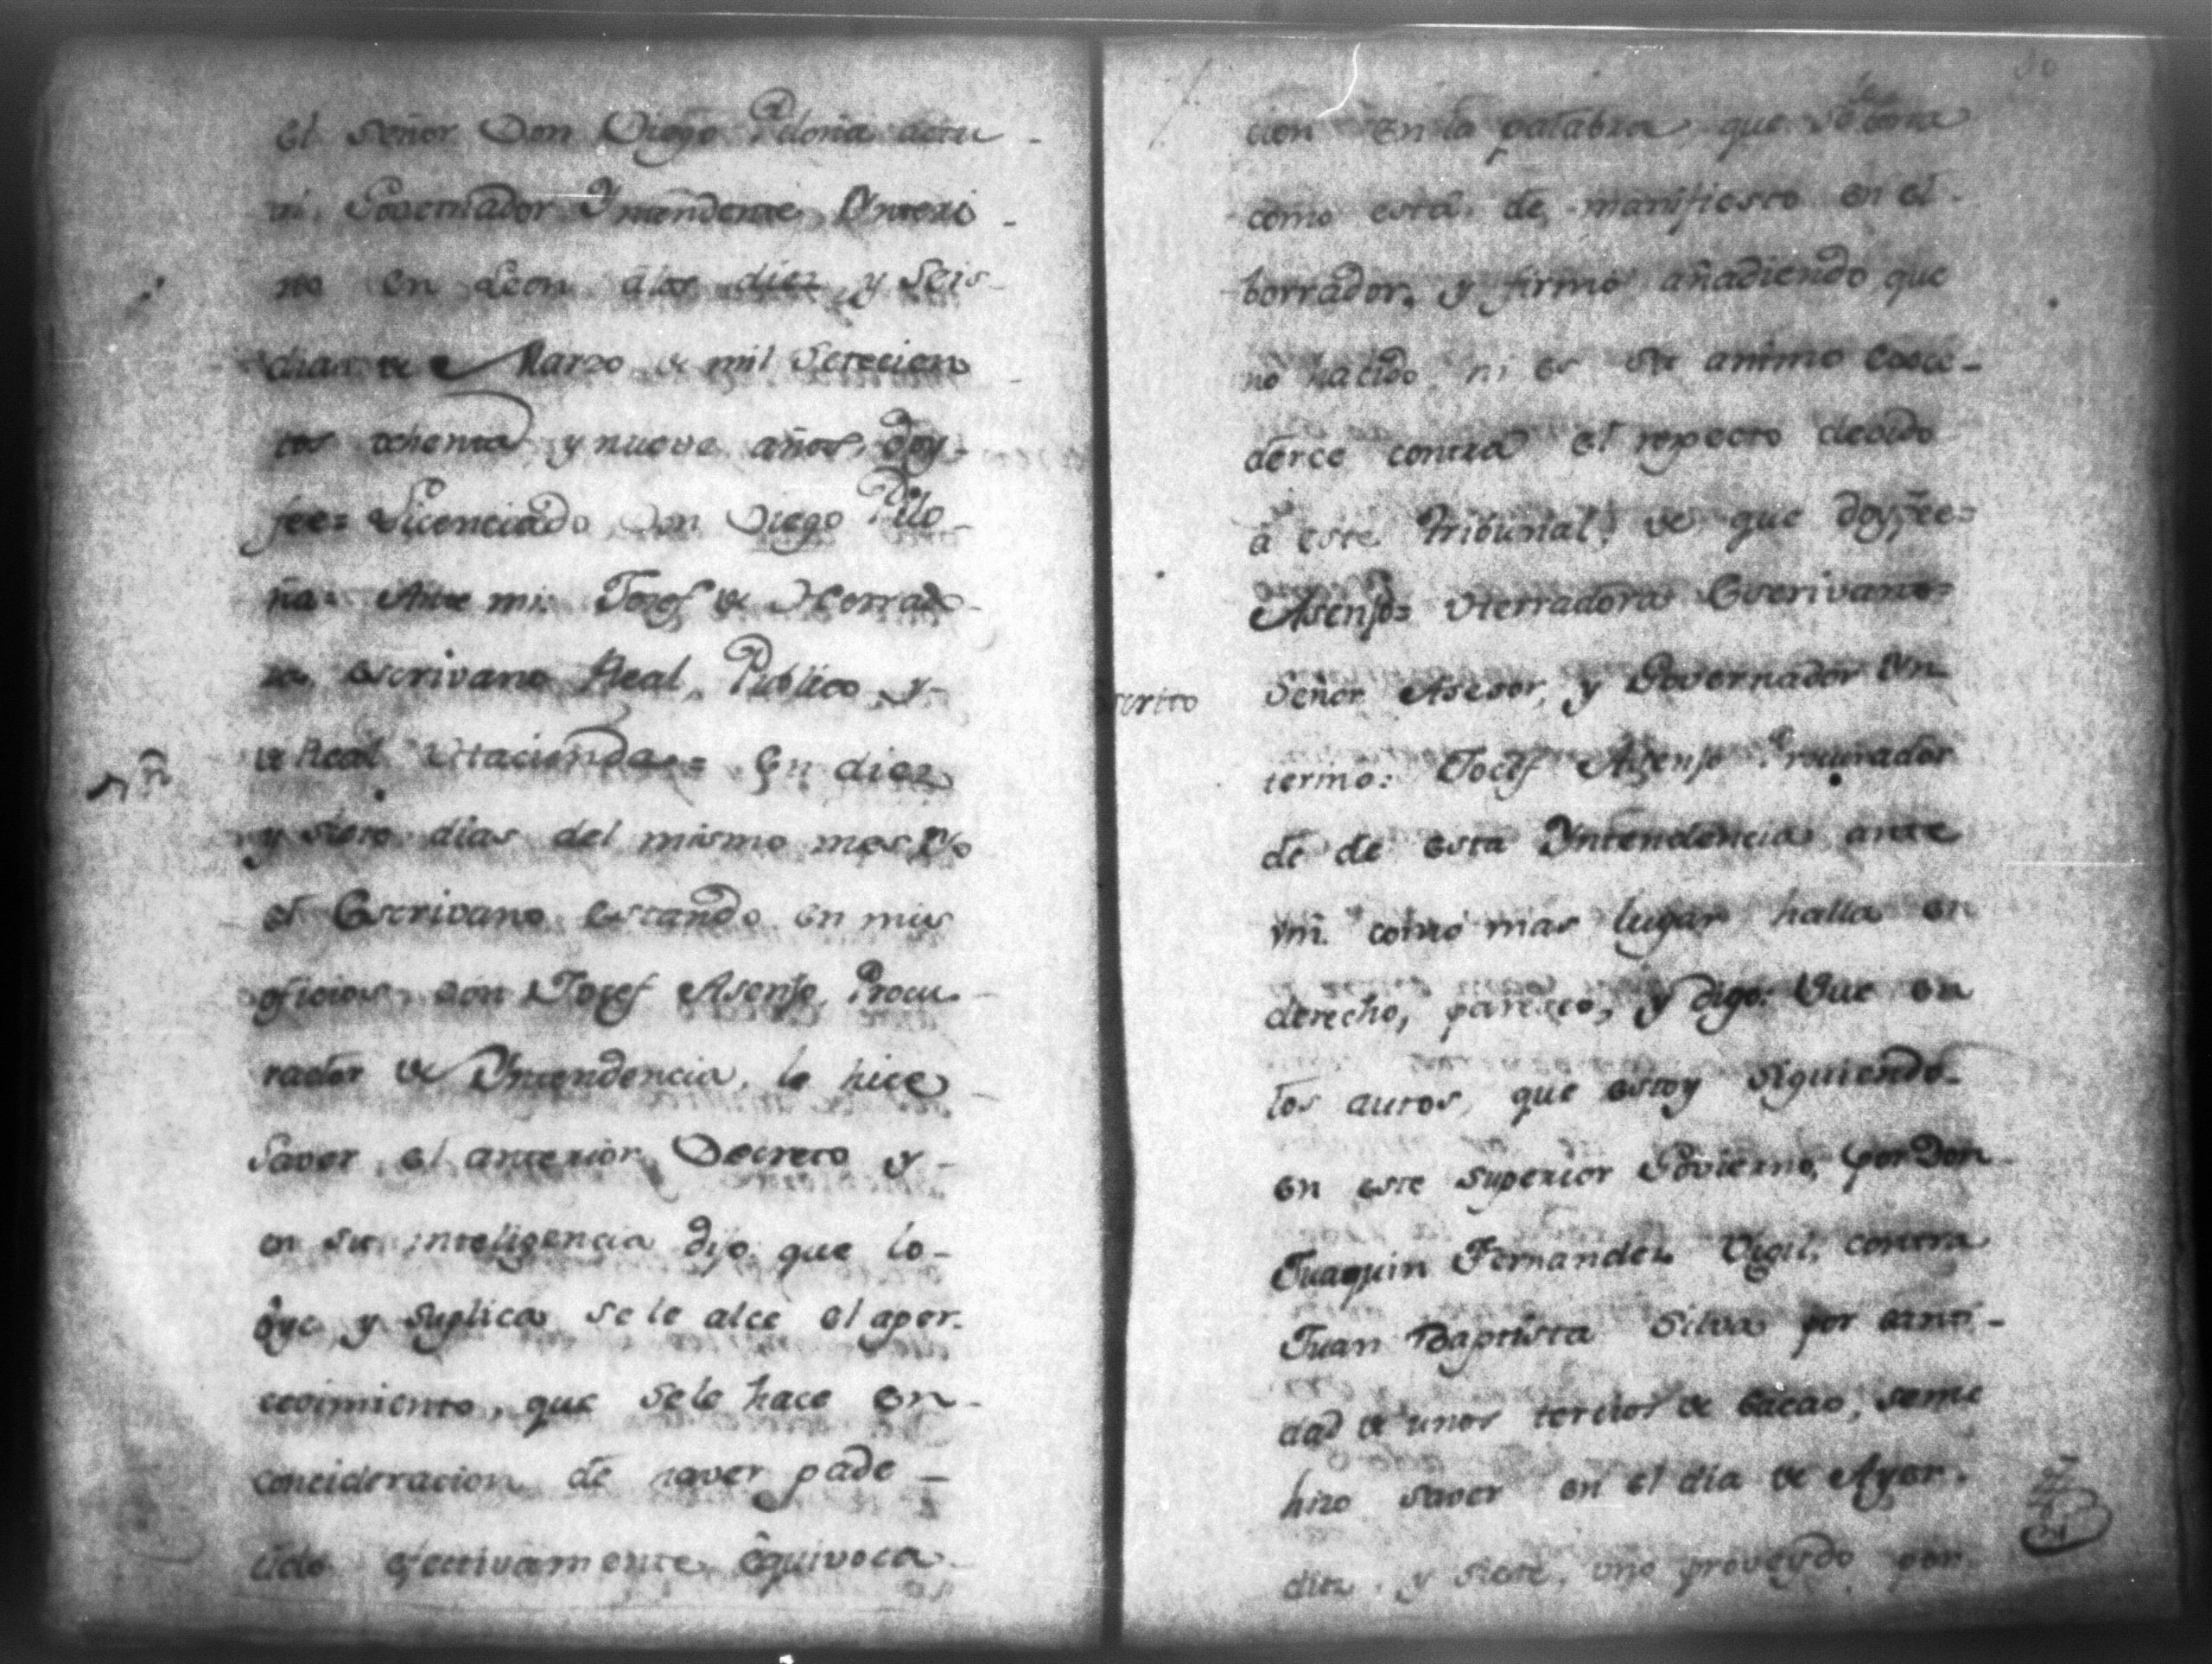 el Señor Don Diego Piloña actu-
al Governador Yntendente Ynteri-
no en Leon a los diez y Seis-
dias de Marzo de mil Setecien-
tos ochenta y nueve años, doy-
fee= Licenciado Don Diego Pilo-
ña= Ante mi: Josef de Herrado-
ra escrivano Real, Publico y-
de Real Hacienda= En diez
y siete dias del mismo mes Yo
el Escrivano estando en mis
oficios con Josef Asenjo, Procu-
rador de Yntendencia, le hice
Saver el anterior Decreto y-
en su inteligencia dijo que lo-
óye y suplica se le alce el aper-
cevimiento, que sele hace en-
concideracion de haver pade-
cido efectivamente équivoca-
cion en la palabra que
como está de manifiesto en el-
borrador, y firmó añadiendo que
no ha cido ni es su animo exce-
derce contra el respecto devido
á este Tribunal, de que doy fee=
Asenjo= Herradora Escrivano=
crito
Señor Asesor, y Governador Yn-
terino: Josef Asenjo Procurador
de de esta Yntendencia ante
vm. como mas lugar halla en
derecho, paresco, y digo: Que en
los autos, que estoy siguiendo-
en este superior Govierno, por Don
Juaquin Fernandez Vigil, contra
Juan Baptista Silva por canti-
dad de unos tercios de Cacao, seme
hizo saver en el dia de Ayer.
diez y siete, uno proveydo por